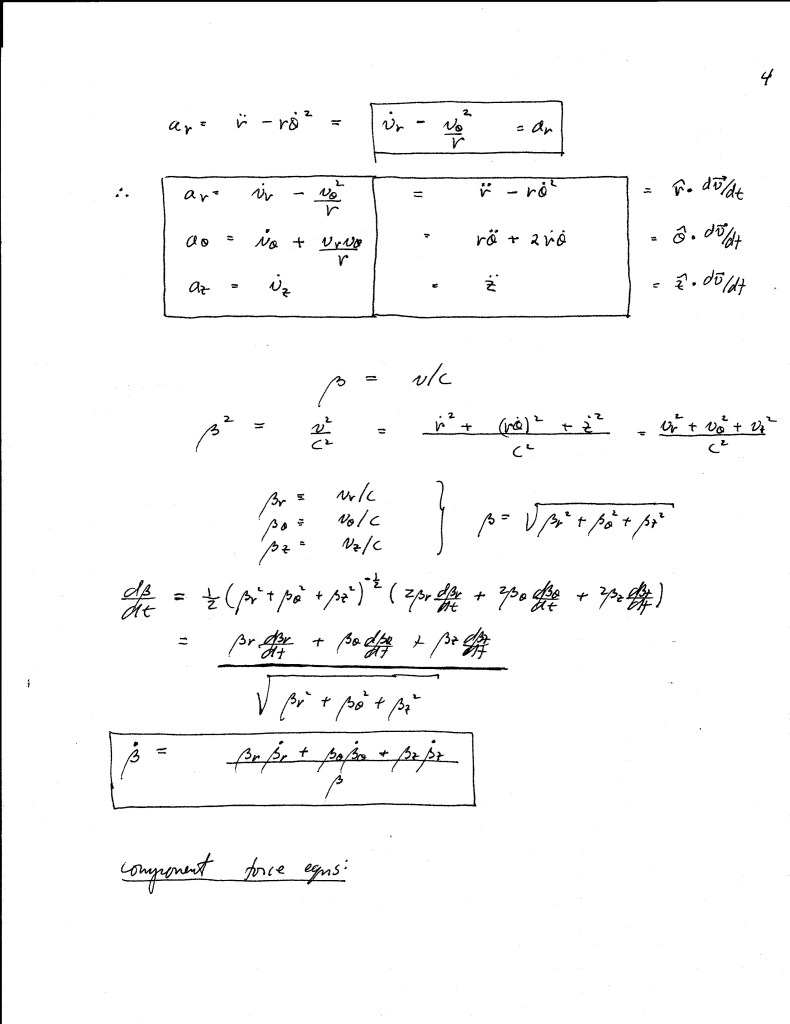 4
a_r = r̈ − rθ̇² = v̇_r − v_θ²/r = a_r
∴ a_r = v̇_r − v_θ²/r = r̈ − rθ̇² = r̂ · dv⃗/dt
a_θ = v̇_θ + v_r v_θ/r = rθ̈ + 2ṙθ̇ = θ̂ · dv⃗/dt
a_z = v̇_z = z̈ = ẑ · dv⃗/dt
β = v/c
β² = v²/c² = (ṙ² + (rθ̇)² + ż²)/c² = (v_r² + v_θ² + v_z²)/c²
β_r = v_r/c
β_θ = v_θ/c } β = √(β_r² + β_θ² + β_z²)
β_z = v_z/c
dβ/dt = ½ (β_r² + β_θ² + β_z²)^(-½) (2β_r dβ_r/dt + 2β_θ dβ_θ/dt + 2β_z dβ_z/dt)
= (β_r dβ_r/dt + β_θ dβ_θ/dt + β_z dβ_z/dt) / √(β_r² + β_θ² + β_z²)
β̇ = (β_r β̇_r + β_θ β̇_θ + β_z β̇_z)/β
component force eqns: